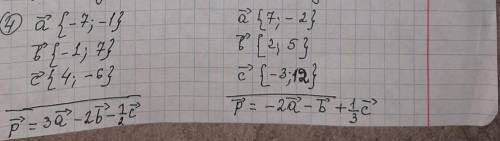 ④ a⃗ {-7; -1}
b⃗ {-1; 7}
c⃗ {4; -6}
p⃗ = 3a⃗ - 2b⃗ - ½c⃗
a⃗ {7; -2}
b⃗ {2; 5}
c⃗ {-3; 12}
p⃗ = -2a⃗ - b⃗ + ⅓c⃗